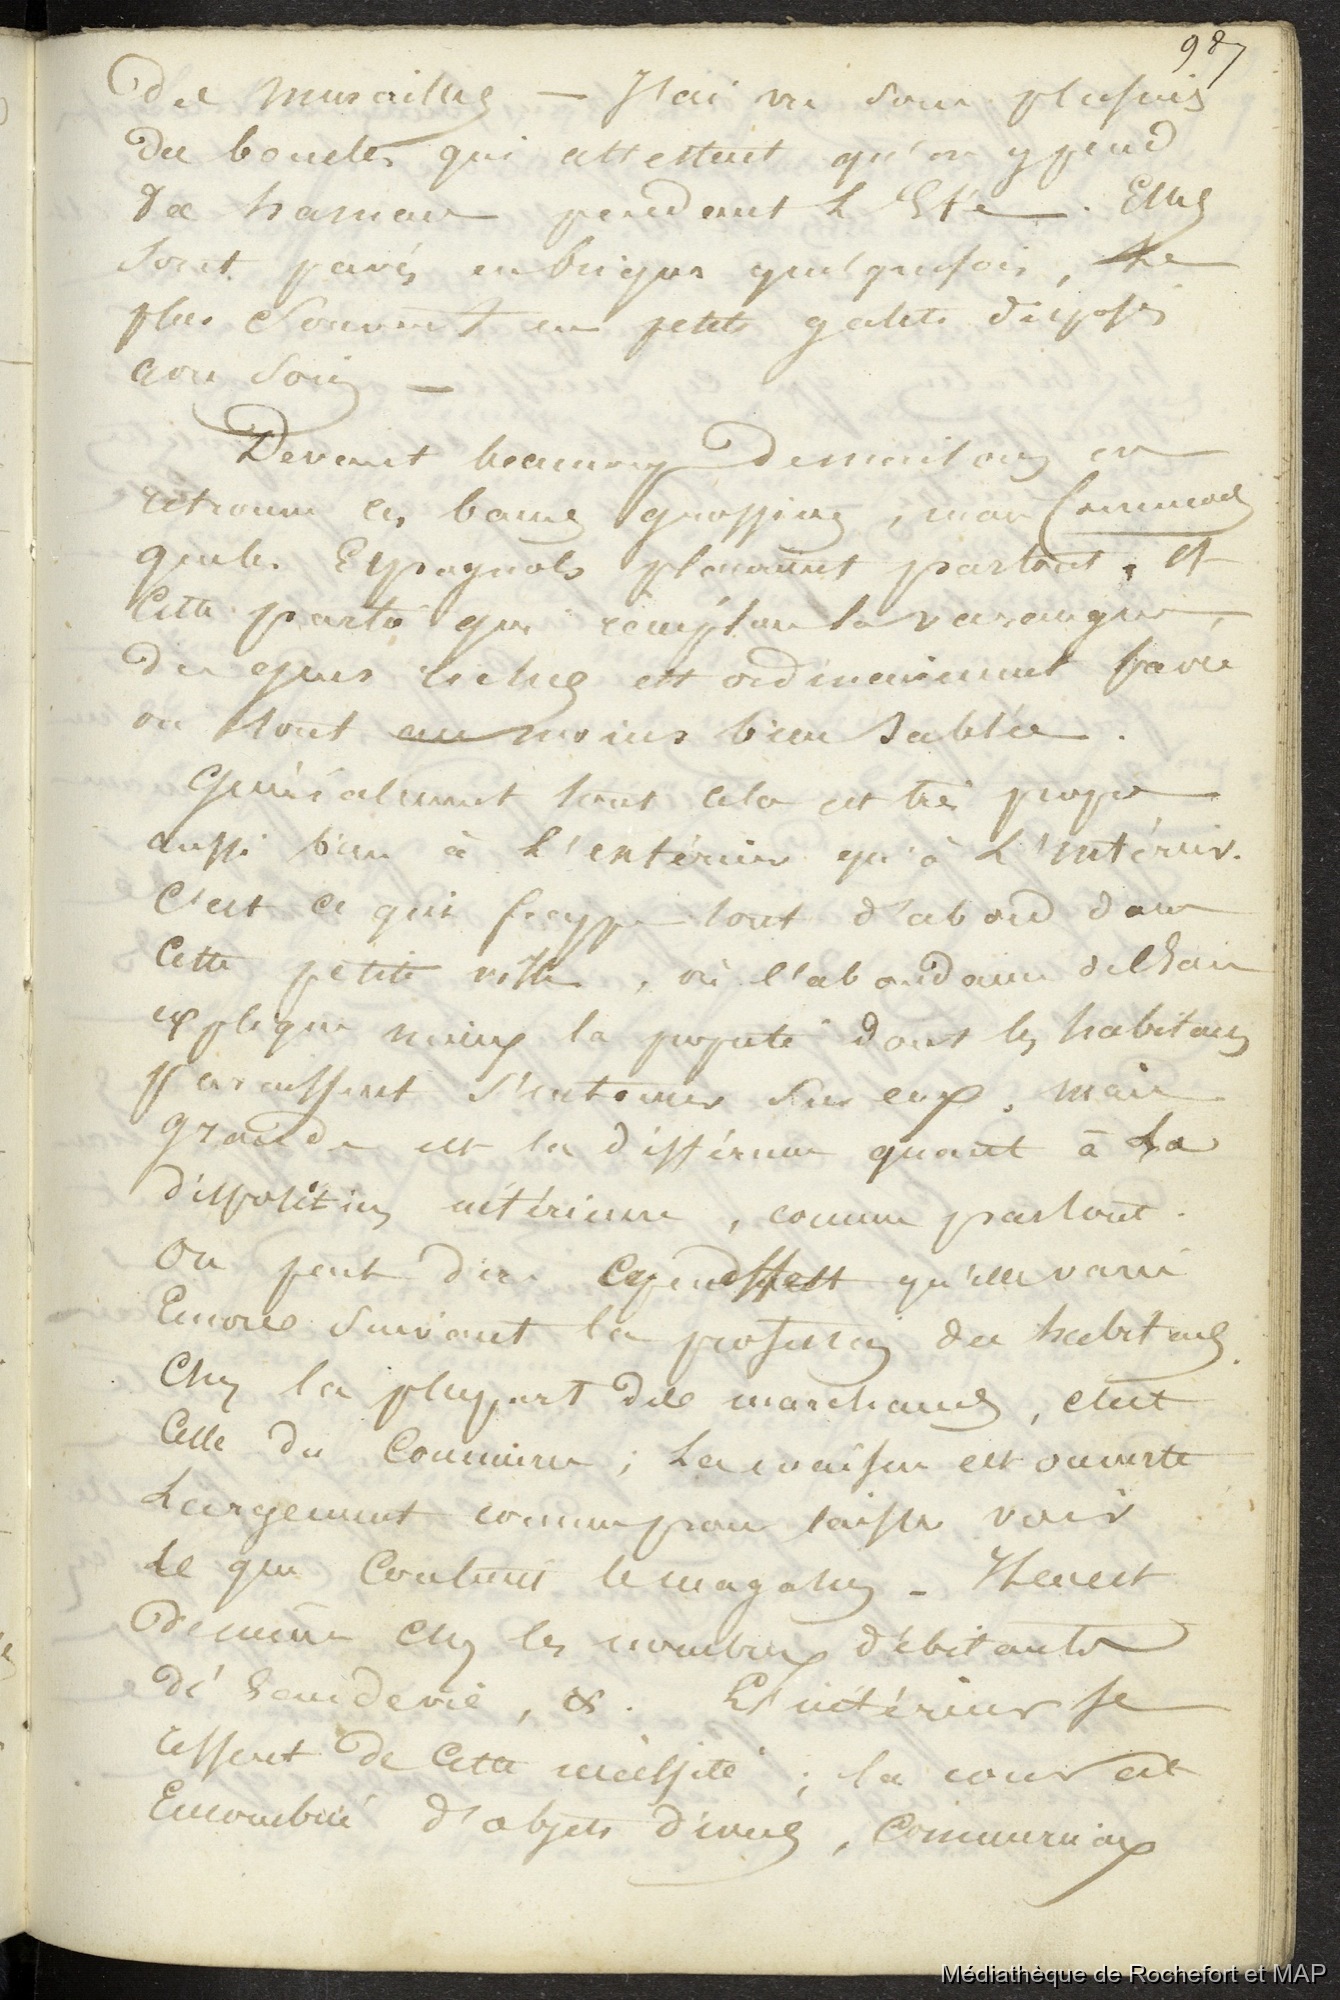 987
des murailles — J'ai vu sous plusieurs
des boucles qui attestent qu'on y pend
des hamacs pendant l'Eté. Elles
sont pavés en briques quelquefois, le
plus souvent en petits galets disposés
avec soin —
Devant beaucoup de maisons on
retrouve ces bancs grossiers, mais commodes
que les Espagnols placaient partout, et
cette partie qui remplace la varangue,
des gens riches est ordinairement pavée
ou tout au moins bien sablée.
Généralement tout cela est très propre
aussi bien à l'extérieur qu'à l'intérieur.
C'est ce qui frappe tout d'abord dans
cette petite ville, où l'abondance de l'eau
explique mieux la propreté dont les habitans
paraissent s'entourer sur eux. mais
grande est la différence quant à la
disposition intérieure, comme partout.
On peut dire cependant qu'elle varie
encore suivant la profession des habitans.
Chez la pluspart des marchands, c'est
celle du commerce; la maison est ouverte
largement comme pour laisser voir
ce que contient le magasin — Il en est
de même chez les nombreux débitants
d'eau de vie, &. L'intérieur se
ressent de cette nécessité; la cour est
encombrée d'objets divers, commerciaux
Médiathèque de Rochefort et MAP